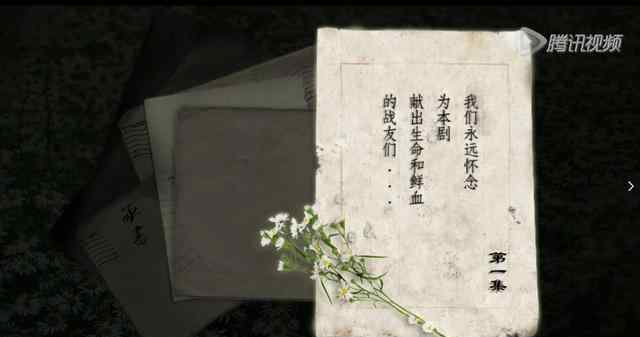 腾讯视频
我们永远怀念
为本剧
献出生命和鲜血
的战友们...
第一集